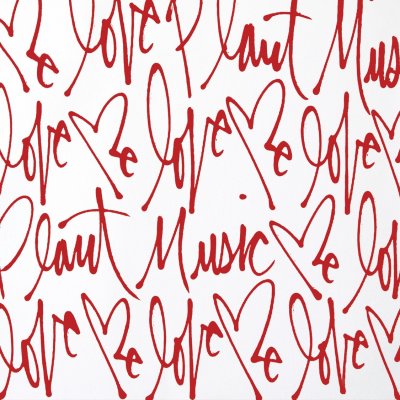 Me love Plant Mus
love Me love Me love Me
Plant Music Me lov
love Me love Me love Me